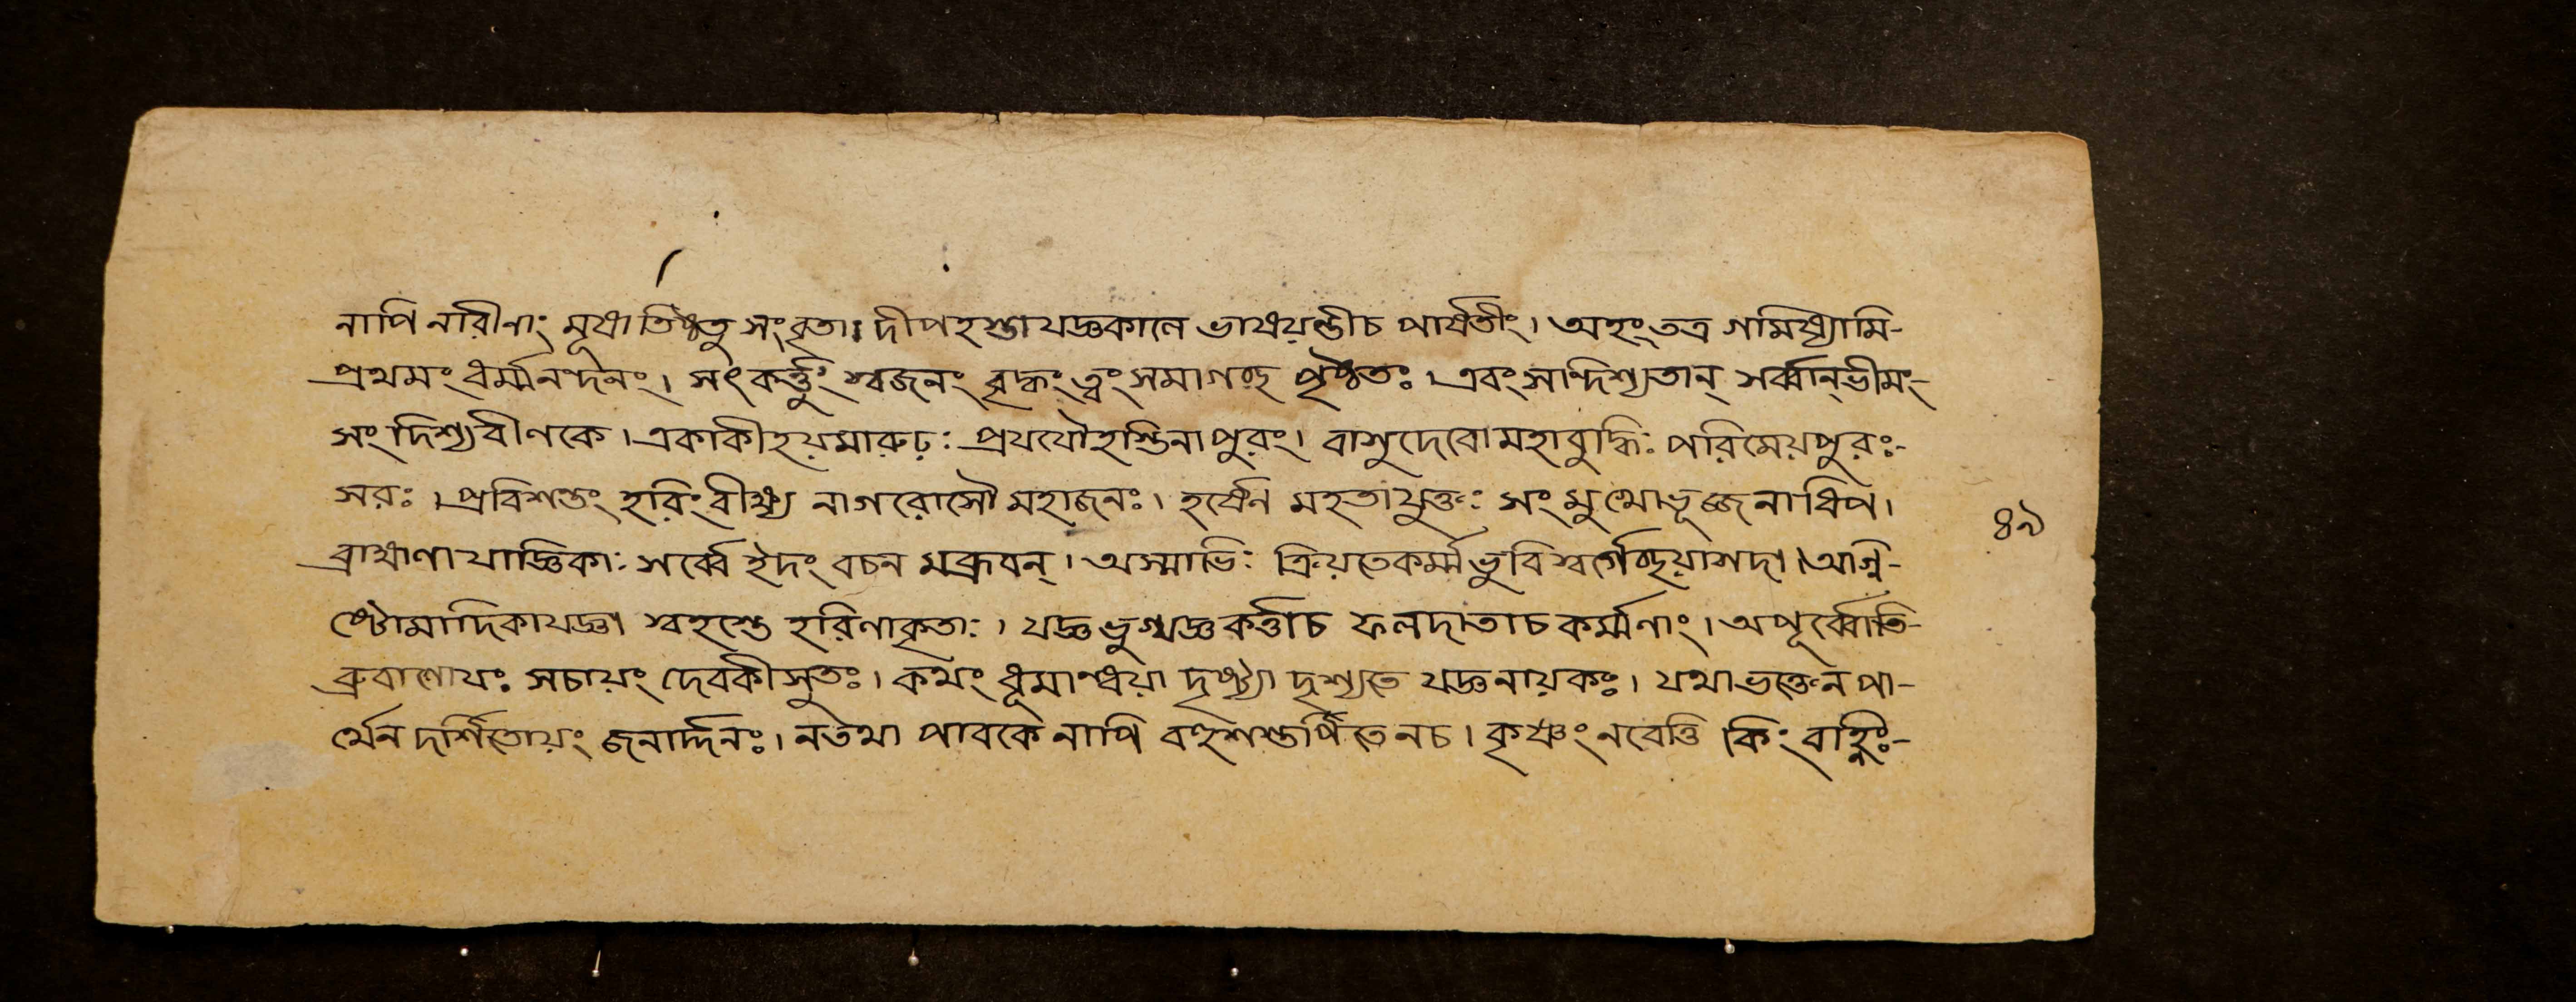 নাপি নারীণাং মূষাতিষ্ঠতু সংবৃতাঃ দীপহস্তাযজ্ঞকালে ভাষয়ন্তীচ পার্ষতীং। অহংতত্র গমিষ্যামি-
প্রথমং ধর্ম্মনন্দনং। সৎকর্ত্তুং স্বজনং বৃদ্ধং ত্বংসমাগচ্ছ পৃষ্ঠতঃ। এবংসন্দিশ্যতান্ সর্ব্বান্ভীমং-
সংদিশ্যবীণকে। একাকীহয়মারুঢ়ঃ প্রযযৌহস্তিনাপুরং। বাসুদেবোমহাবুদ্ধিঃ পরিমেয়পুরঃ-
সরঃ। প্রবিশন্তং হরিংবীক্ষ্য নাগরোসৌ মহাজনঃ। হর্ষেন মহতাযুক্তঃ সংমুখোভূজ্জনাধিপ।
ব্রাহ্মণাযাজ্ঞিকাঃ সর্ব্বে ইদং বচন মব্রুবন্। অস্মাভিঃ ক্রিয়তেকর্ম্মভুবিস্বর্গেচ্ছয়াসদা। আগ্নি-
ষ্টোমাদিকাযজ্ঞা স্বহস্তে হরিণাকৃতাঃ। যজ্ঞভুগ্যজ্ঞকর্ত্তাচ ফলদাতাচ কর্ম্মণাং। অপূর্ব্বোতি-
ব্রুবাণোযঃ সচায়ং দেবকীসুতঃ। কথং ধূমান্ধয়া দৃষ্ট্যা দৃশ্যতে যজ্ঞনায়কঃ। যথাভক্তেন পা-
র্থেন দর্শিতোয়ং জনার্দ্দনঃ। নতথা পাবকেনাপি বহুশস্তর্পিতেনচ। কৃষ্ণং নবেত্তি কিং বাহ্নিঃ-
৪৯